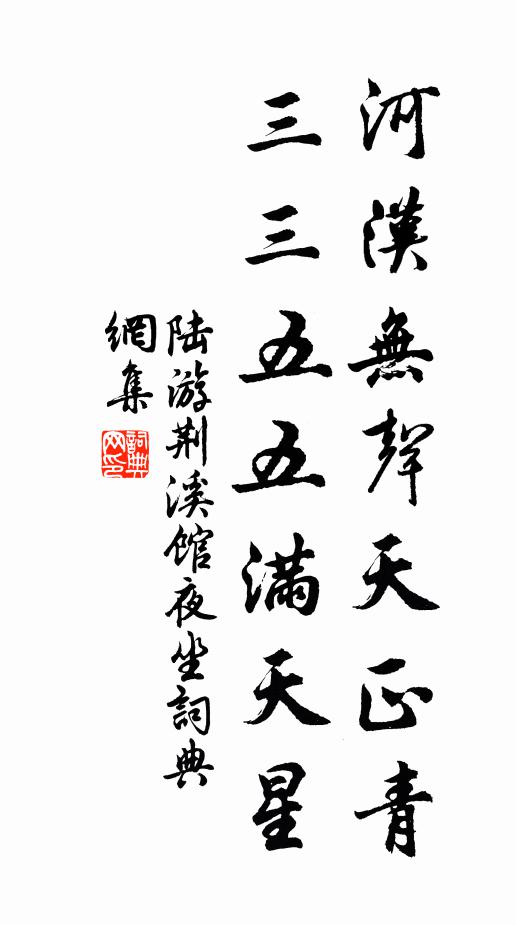 河漢無聲天正青
三三五五滿天星
陆游荆溪館夜坐詞典
網集
詞典
网印